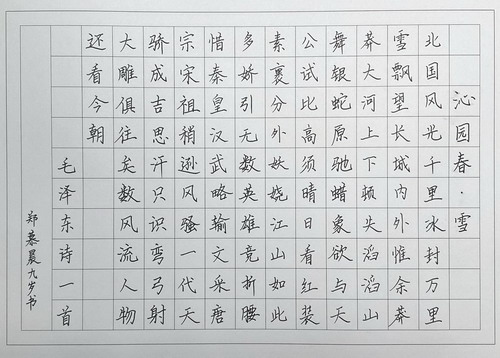 沁园春·雪
北国风光千里冰封万里
雪飘望长城内外惟余莽
莽大河上下顿失滔滔山
舞银蛇原驰蜡象欲与天
公试比高须晴日看红装
素裹分外妖娆江山如此
多娇引无数英雄竞折腰
惜秦皇汉武略输文采唐
宗宋祖稍逊风骚一代天
骄成吉思汗只识弯弓射
大雕俱往矣数风流人物
还看今朝
毛泽东诗一首
郑慕晨九岁书